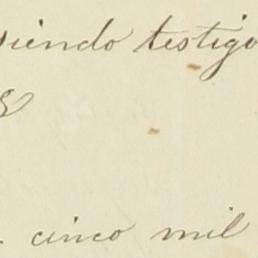 siendo testigo
cinco mil